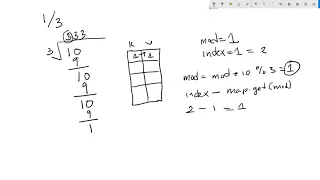 1/3
0.33
3 10
9
10
9
10
9
1
K V
1 1
mod = 1
index = 1 = 2
mod = mod * 10 % 3 = 1
index - map.get(mod)
2 - 1 = 1